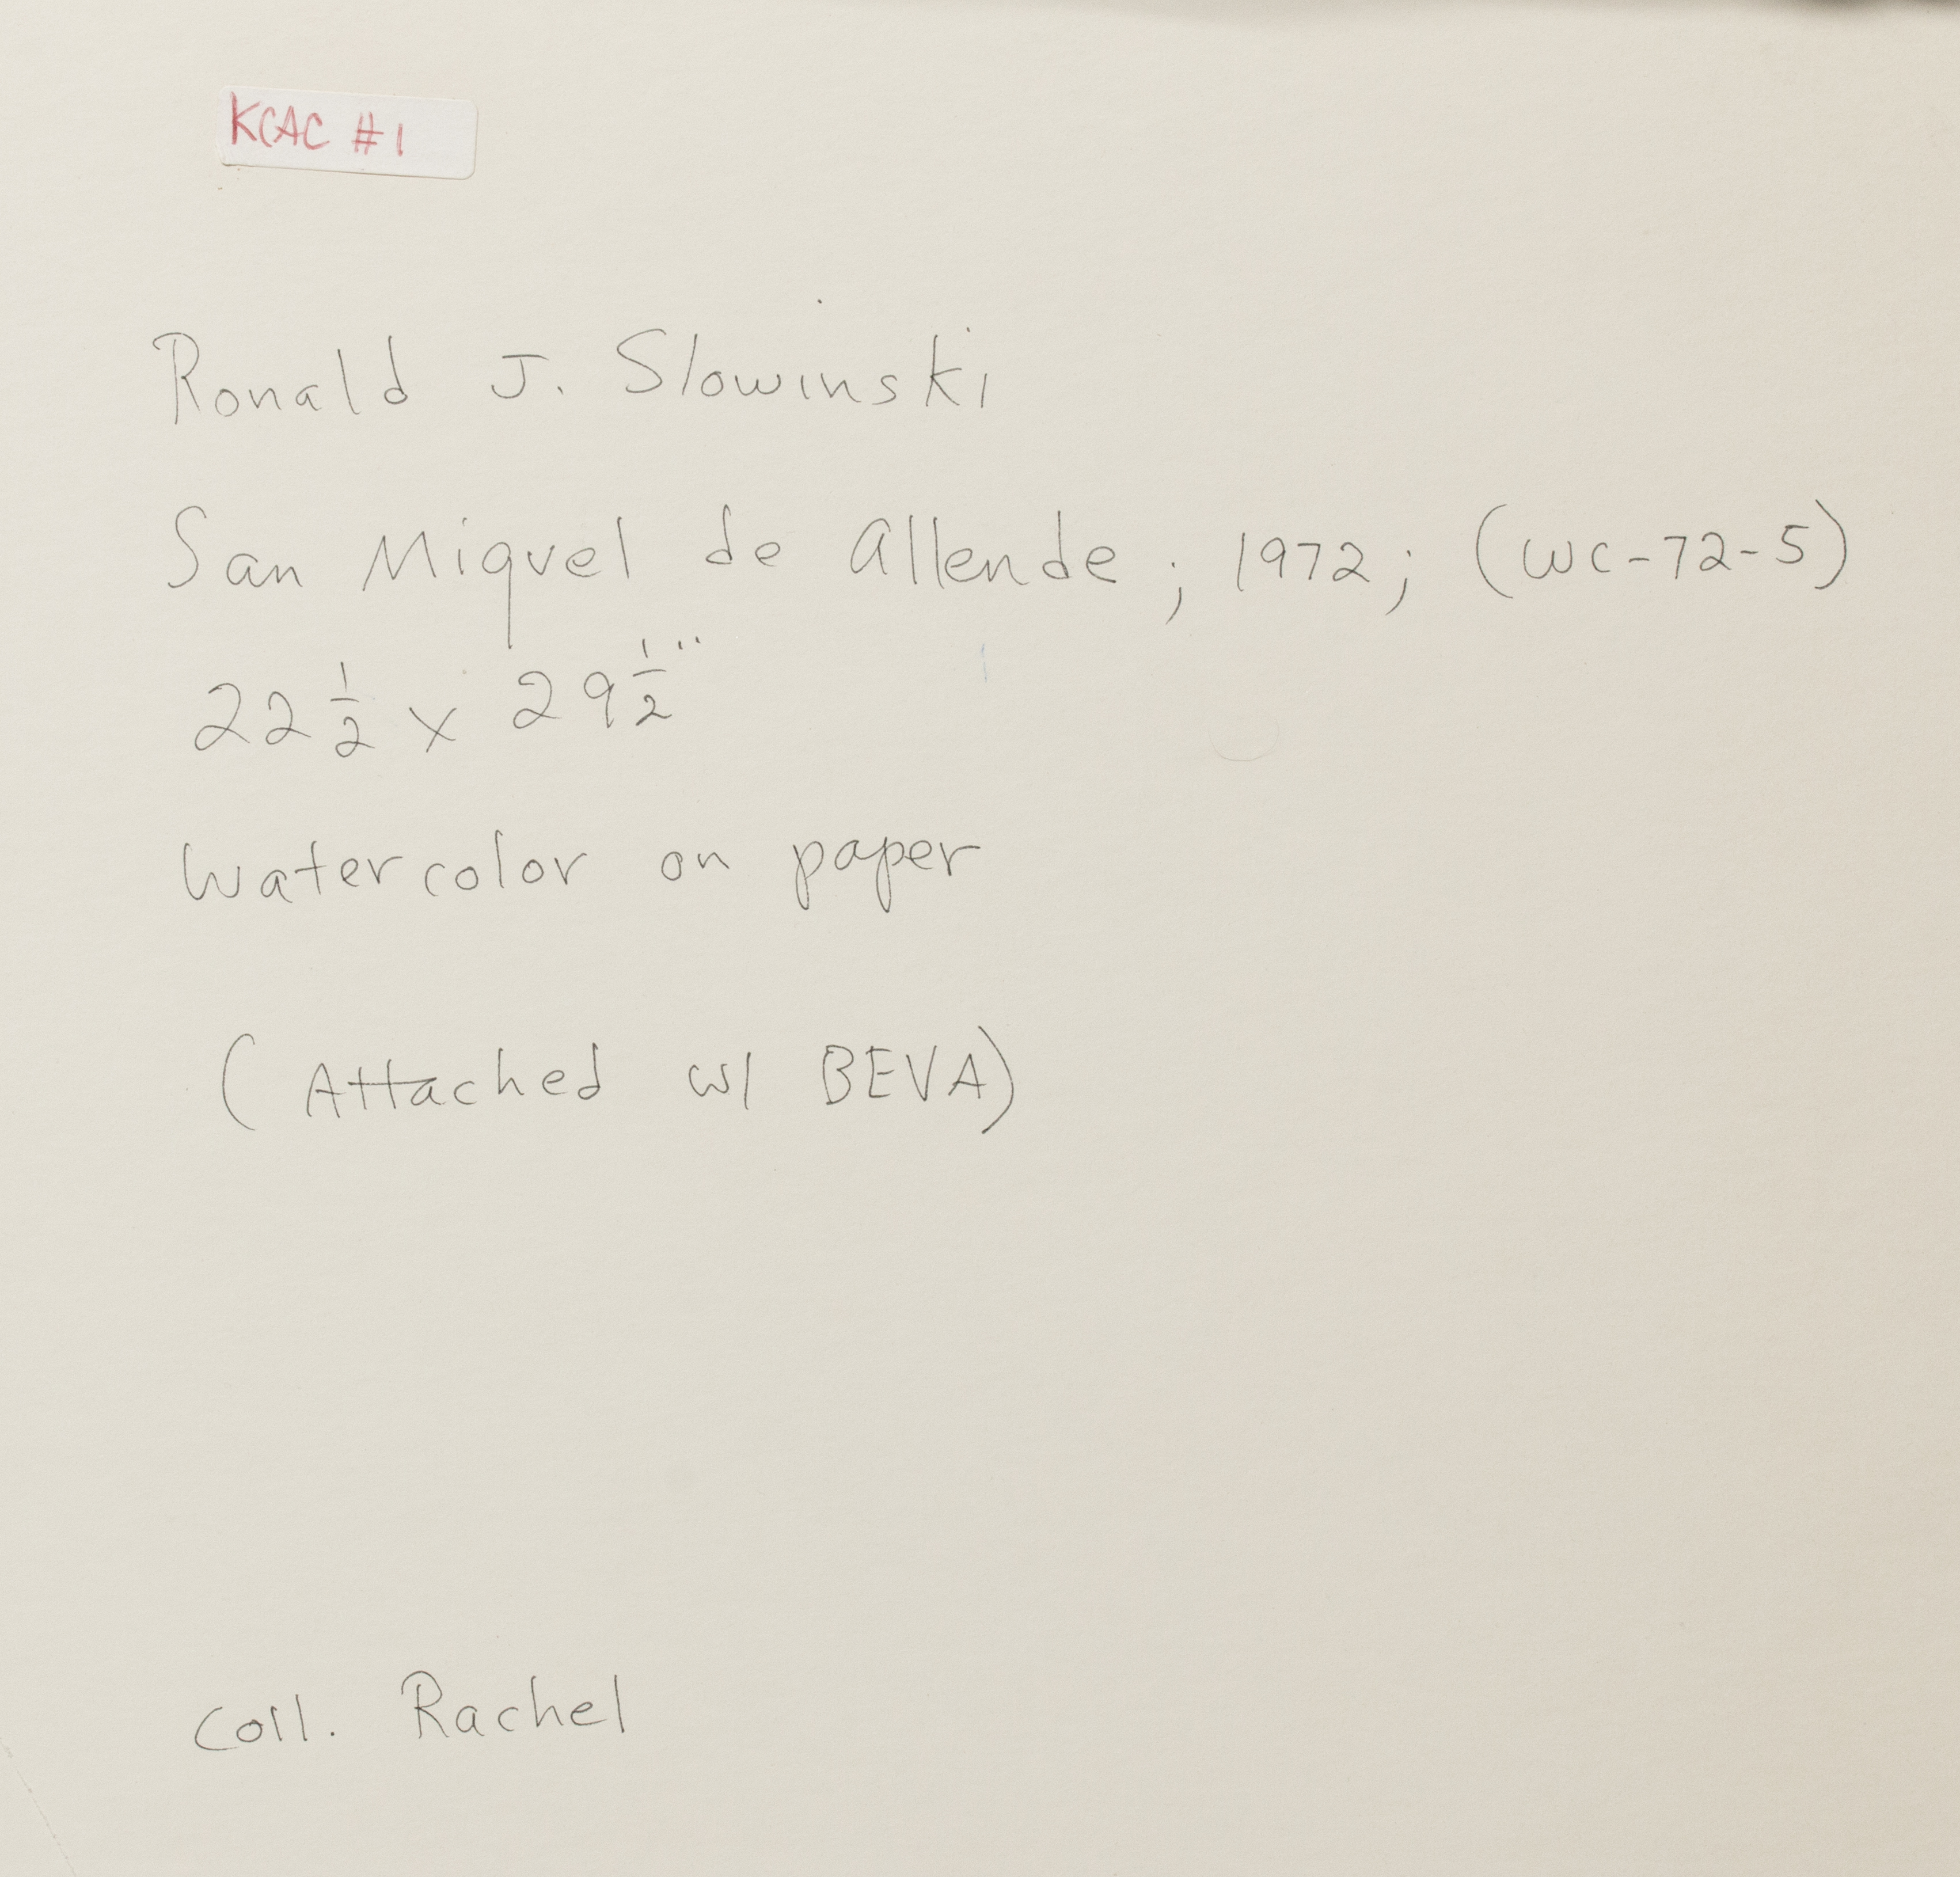 KCAC #1
Ronald J. Slowinski
San Miquel de Allende; 1972; (WC-72-5)
22 1/2 x 29 1/2"
Watercolor on paper
(Attached w/ BEVA)
Coll. Rachel